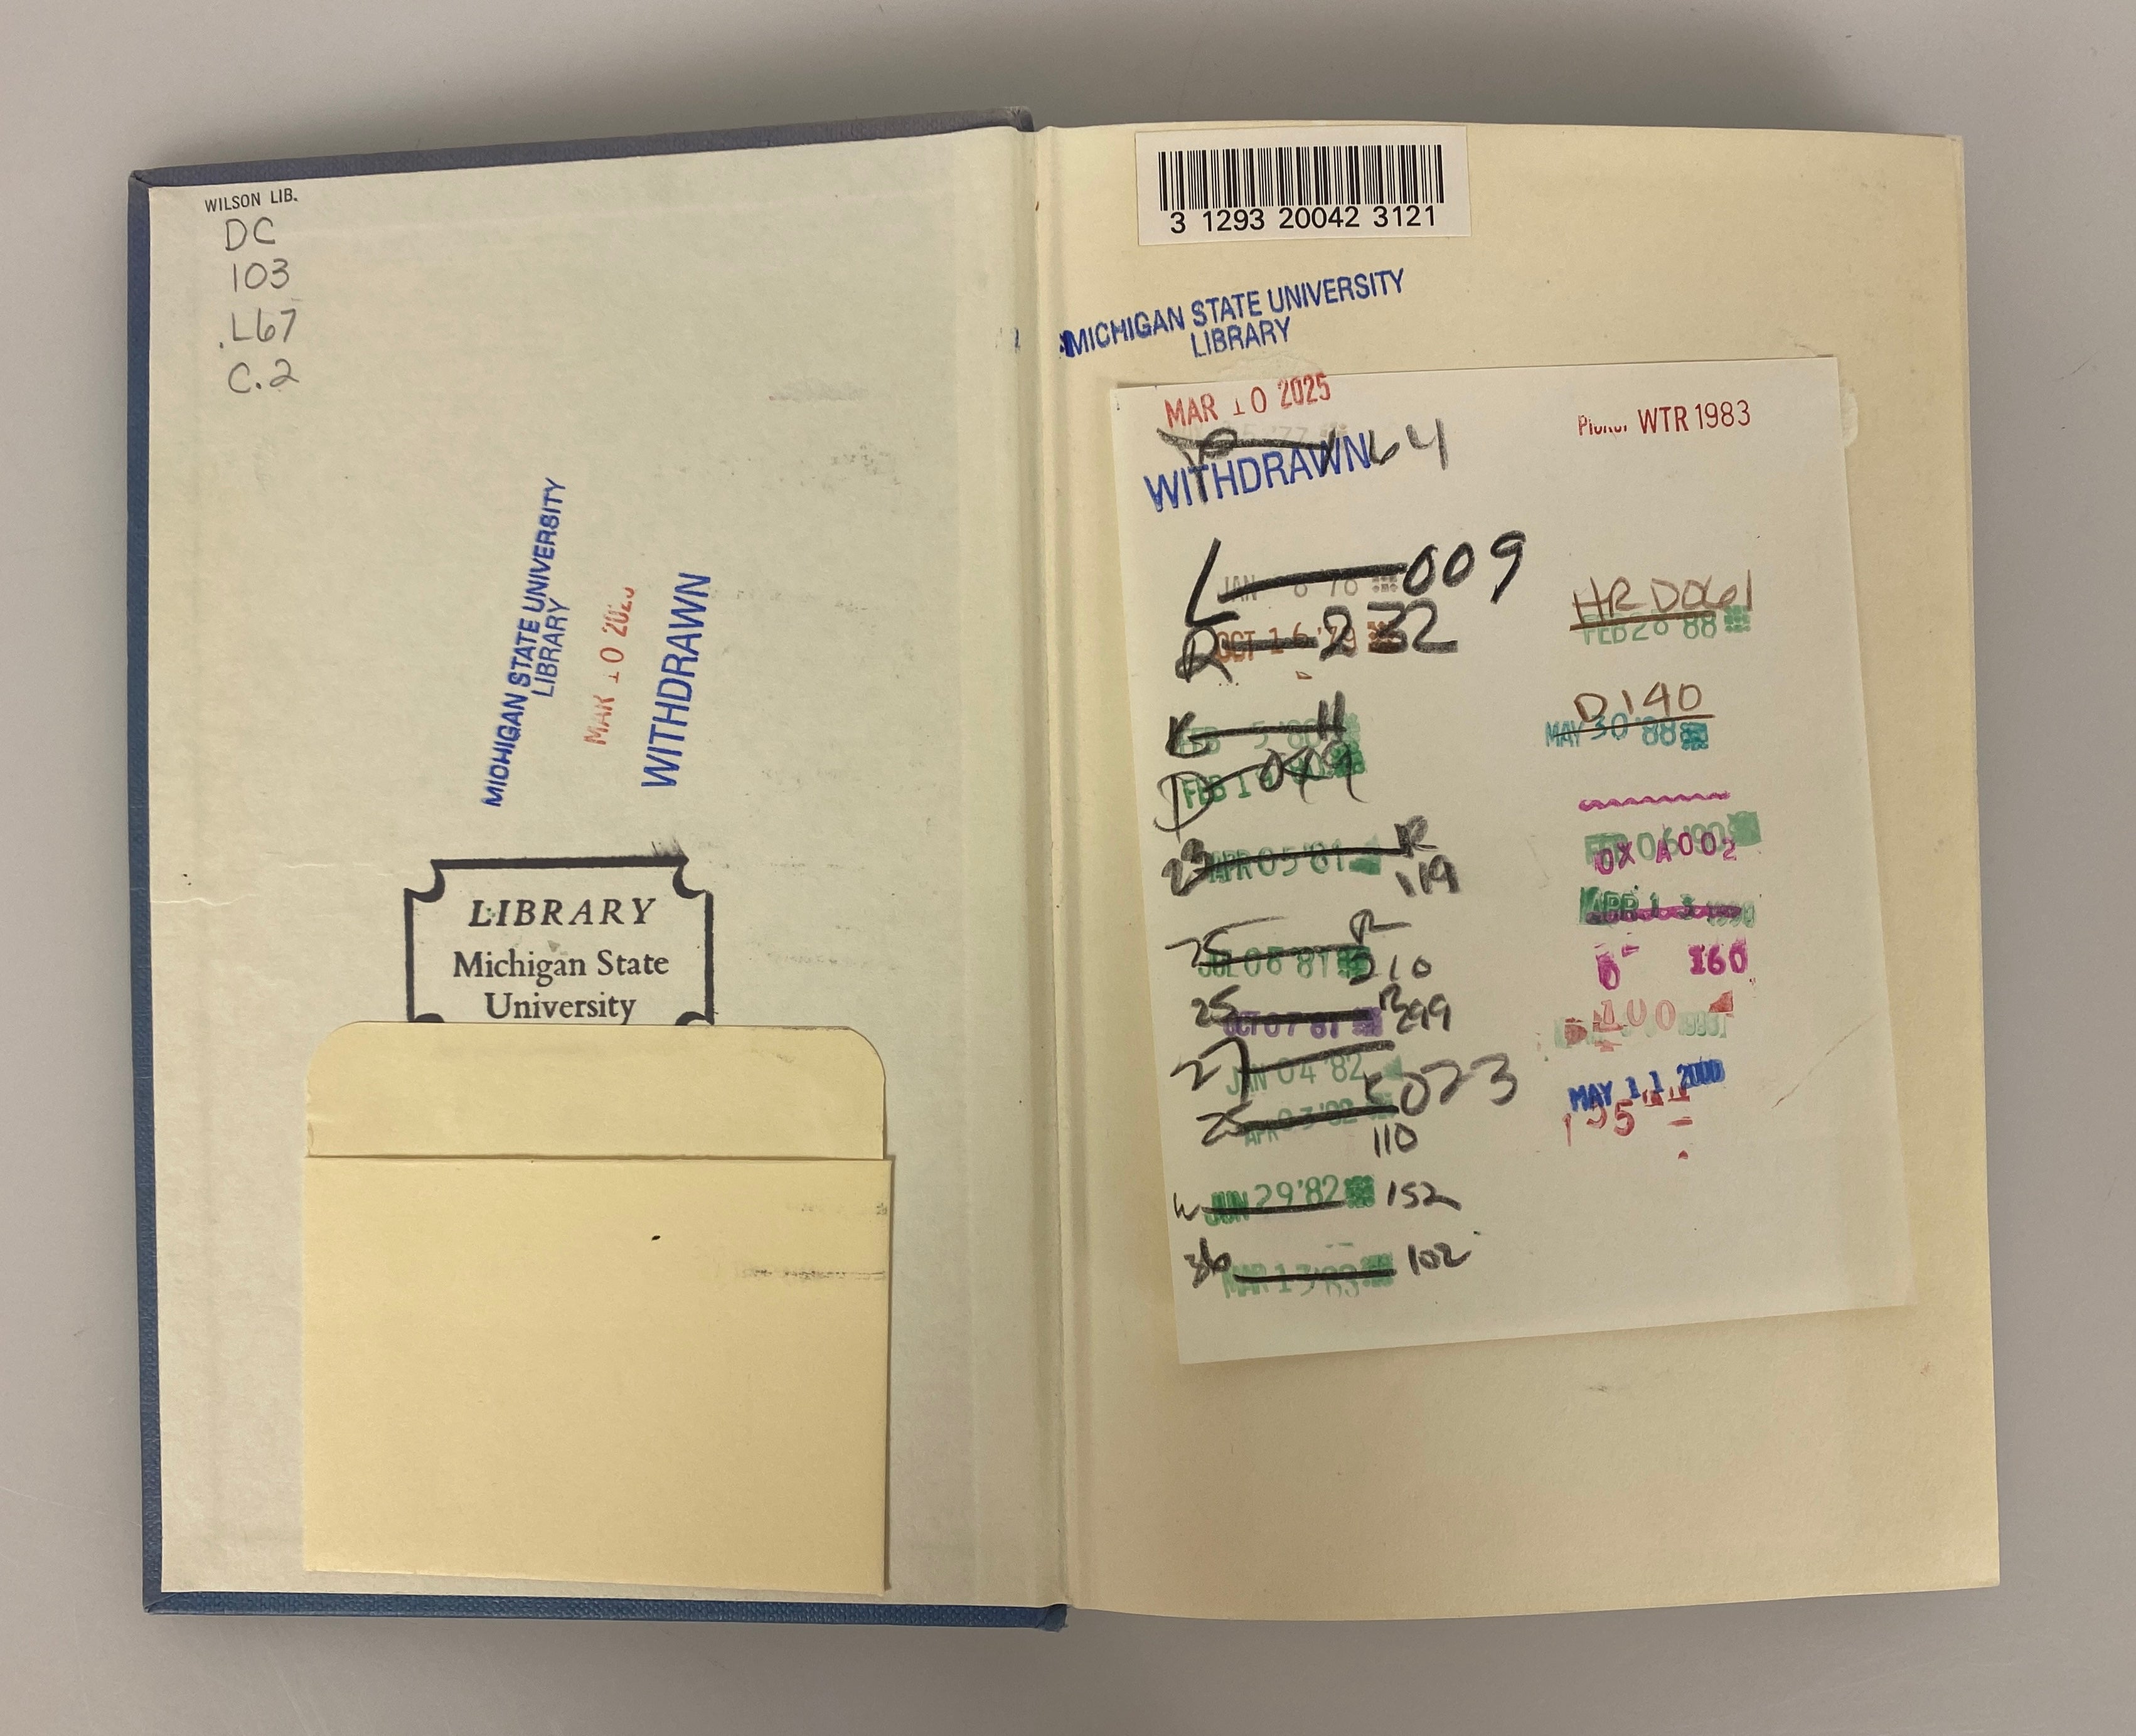 WILSON LIB.
DC
103
.L67
C.2
MICHIGAN STATE UNIVERSITY
LIBRARY
MAR 10 202
WITHDRAWN
LIBRARY
Michigan State
University
3 1293 20042 3121
MICHIGAN STATE UNIVERSITY
LIBRARY
MAR 10 2025
64
WITHDRAWN
L 009
JAN 8 '78
R 232
OCT 16 '79
K 11
FEB 5 '80
D 049
FEB 1
23 R
APR 05 '81
119
25 R
JUL 08 '81
210
25 R 299
OCT 07 '81
27
JAN 04 '82
K023
25
APR 03 '82
110
W JUN 29 '82 152
36 102
MAR 13 '83
WTR 1983
HR D061
FEB 28 '88
D 140
MAY 30 '88
FEB 06 '90
OX A002
APR 1 1990
160
MAY 11 2000